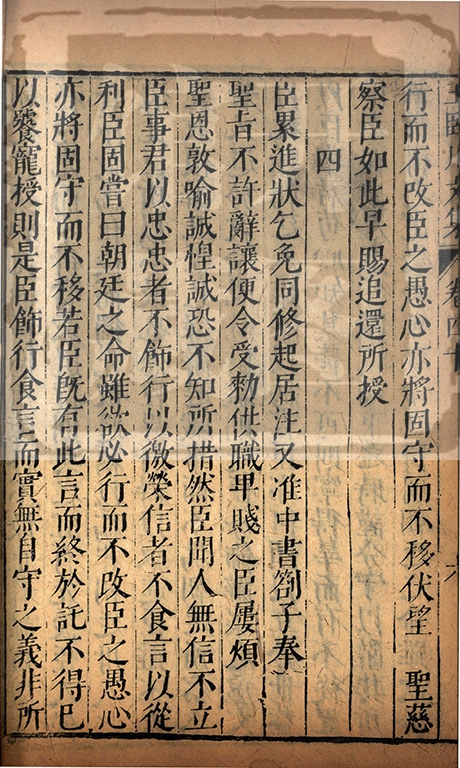 臨川文集 卷四十
行而不改臣之愚心亦將固守而不移伏望 聖慈
察臣如此早賜追還所授
四
臣累進狀乞免同修起居注又准中書劄子奉
聖旨不許辭讓便令受勑供職卑賤之臣屢煩
聖恩敦喻誠惶誠恐不知所措然臣聞人無信不立
臣事君以忠忠者不飾行以徼榮信者不食言以從
利臣固嘗曰朝廷之命雖欲必行而不改臣之愚心
亦將固守而不移若臣旣有此言而終於託不得已
以饕寵授則是臣飾行食言而實無自守之義非所